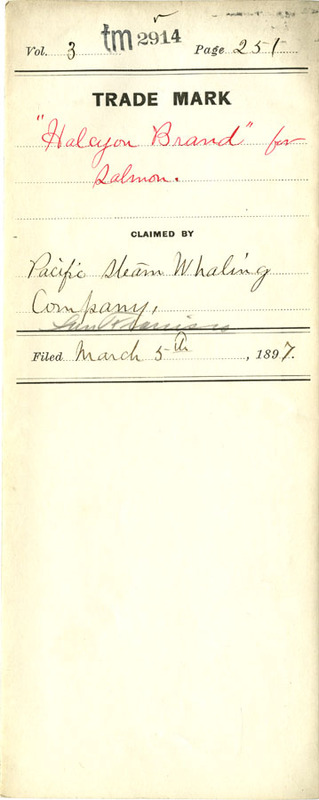 tm 2914
Vol. 3 Page 251
TRADE MARK
"Halcyon Brand" for
Salmon.
CLAIMED BY
Pacific Steam Whaling
Company,
Filed March 5th, 1897.